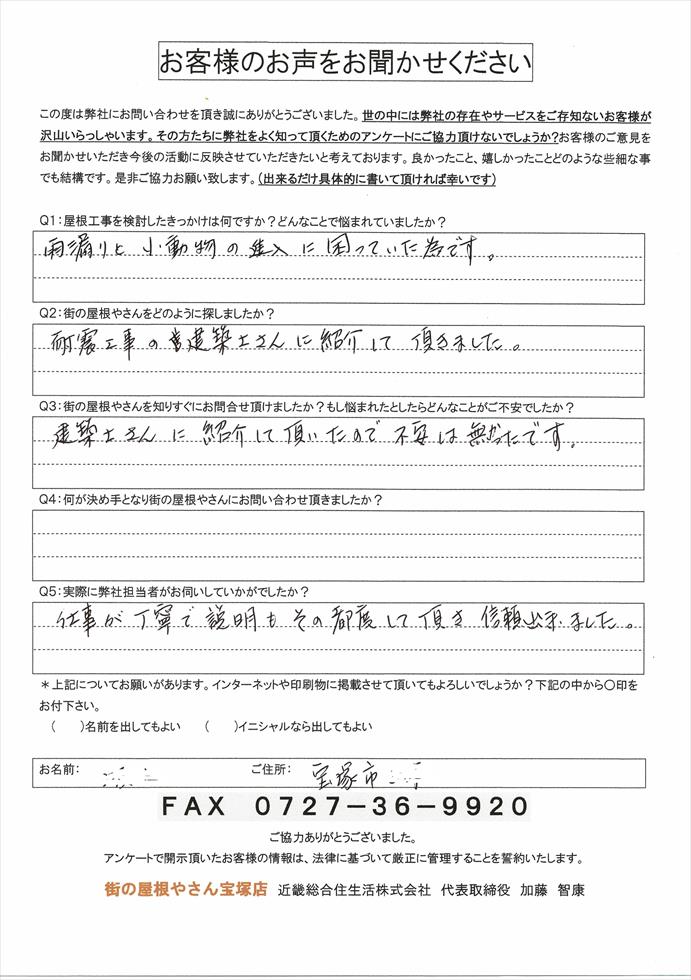 お客様のお声をお聞かせください
この度は弊社にお問い合わせを頂き誠にありがとうございました。世の中には弊社の存在やサービスをご存知ないお客様が
沢山いらっしゃいます。その方たちに弊社をよく知って頂くためのアンケートにご協力頂けないでしょうか?お客様のご意見を
お聞かせいただき今後の活動に反映させていただきたいと考えております。良かったこと、嬉しかったことどのような些細な事
でも結構です。是非ご協力お願い致します。(出来るだけ具体的に書いて頂ければ幸いです)
Q1:屋根工事を検討したきっかけは何ですか?どんなことで悩まれていましたか?
雨漏りと小動物の進入に困っていた為です。
Q2:街の屋根やさんをどのように探しましたか?
耐震工事の建築士さんに紹介して頂きました。
Q3:街の屋根やさんを知りすぐにお問合せ頂けましたか?もし悩まれたとしたらどんなことがご不安でしたか?
建築士さんに紹介して頂いたので不安は無かったです。
Q4:何が決め手となり街の屋根やさんにお問い合わせ頂きましたか?
Q5:実際に弊社担当者がお伺いしていかがでしたか?
仕事が丁寧で説明もその都度して頂き信頼出来ました。
*上記についてお願いがあります。インターネットや印刷物に掲載させて頂いてもよろしいでしょうか?下記の中から〇印を
お付下さい。
( )名前を出してもよい ( )イニシャルなら出してもよい
お名前: ご住所: 宝塚市
FAX 0727-36-9920
ご協力ありがとうございました。
アンケートで開示頂いたお客様の情報は、法律に基づいて厳正に管理することを誓約いたします。
街の屋根やさん宝塚店 近畿総合住生活株式会社 代表取締役 加藤 智康